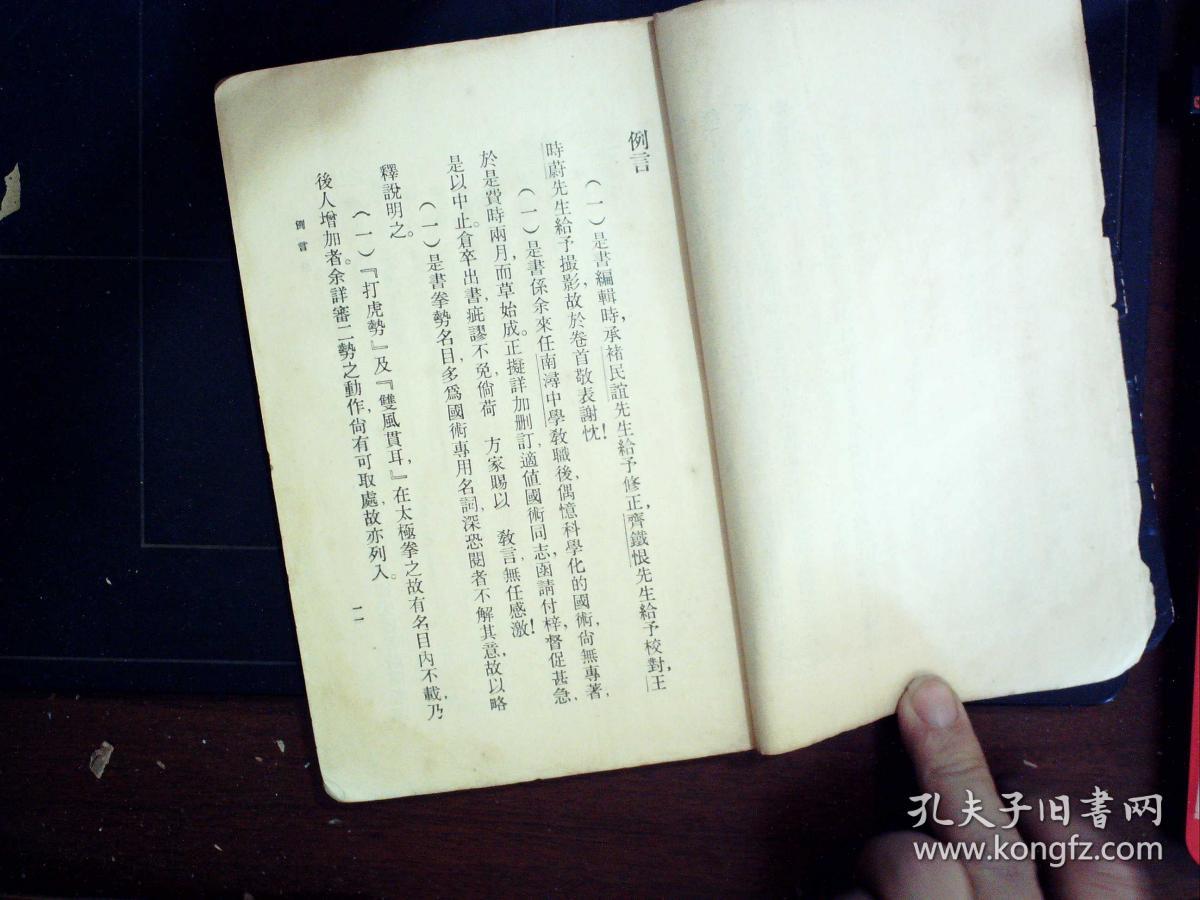 例言
(一)是書編輯時,承褚民誼先生給予修正,齊鐵恨先生給予校對,王
時蔚先生給予撮影,故於卷首敬表謝忱!
(一)是書係余來任南潯中學敎職後,偶憶科學化的國術,尙無專著,
於是費時兩月,而草始成。正擬詳加刪訂,適値國術同志,函請付梓,督促甚急,
是以中止。倉卒出書,疵謬不免,倘荷 方家賜以 敎言,無任感激!
(一)是書拳勢名目,多爲國術專用名詞,深恐閱者不解其意,故以略
釋說明之。
(一)『打虎勢』及『雙風貫耳,』在太極拳之故有名目內不載,乃
後人增加者。余詳審二勢之動作,尙有可取處,故亦列入。
例言
一一
孔夫子旧书网
www.kongfz.com